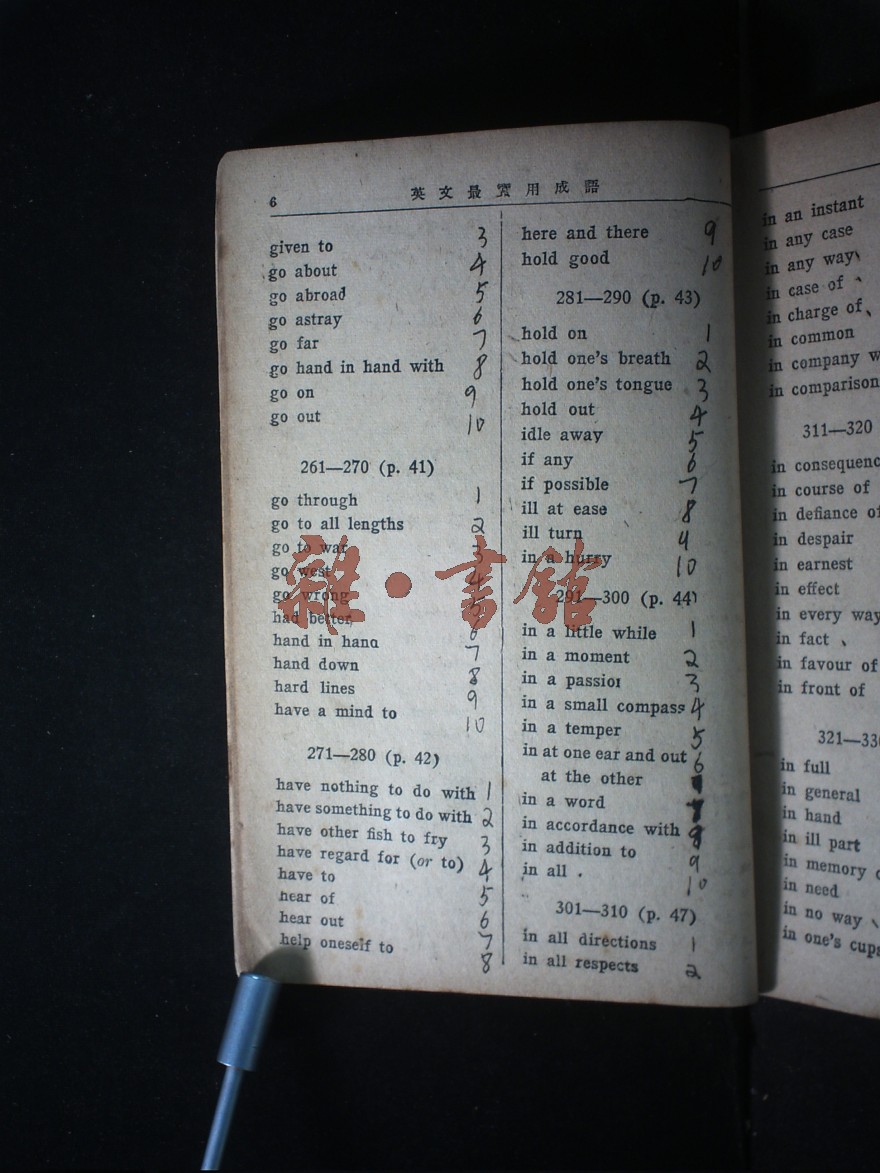 6
英文最實用成語
given to 3
go about 4
go abroad 5
go astray 6
go far 7
go hand in hand with 8
go on 9
go out 10
261—270 (p. 41)
go through 1
go to all lengths 2
go to war 3
go west 4
go wrong 5
had better 6
hand in hand 7
hand down 8
hard lines 9
have a mind to 10
271—280 (p. 42)
have nothing to do with 1
have something to do with 2
have other fish to fry 3
have regard for (or to) 4
have to 5
hear of 6
hear out 7
help oneself to 8
here and there 9
hold good 10
281—290 (p. 43)
hold on 1
hold one's breath 2
hold one's tongue 3
hold out 4
idle away 5
if any 6
if possible 7
ill at ease 8
ill turn 9
in a hurry 10
291—300 (p. 44)
in a little while 1
in a moment 2
in a passion 3
in a small compass 4
in a temper 5
in at one ear and out 6
at the other
in a word 7
in accordance with 8
in addition to 9
in all 10
301—310 (p. 47)
in all directions 1
in all respects 2
in an instant
in any case
in any way
in case of
in charge of
in common
in company w
in comparison
311—320
in consequenc
in course of
in defiance of
in despair
in earnest
in effect
in every way
in fact
in favour of
in front of
321—33
in full
in general
in hand
in ill part
in memory o
in need
in no way
in one's cups
雜·書館